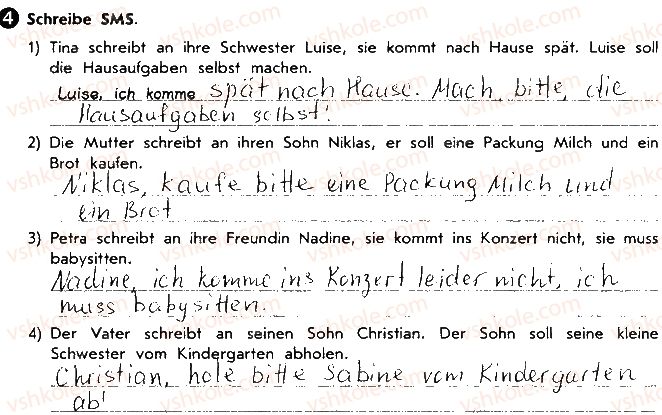 4 Schreibe SMS.
1) Tina schreibt an ihre Schwester Luise, sie kommt nach Hause spät. Luise soll
die Hausaufgaben selbst machen.
Luise, ich komme spät nach Hause. Mach, bitte, die
Hausaufgaben selbst!
2) Die Mutter schreibt an ihren Sohn Niklas, er soll eine Packung Milch und ein
Brot kaufen.
Niklas, kaufe bitte eine Packung Milch und
ein Brot
3) Petra schreibt an ihre Freundin Nadine, sie kommt ins Konzert nicht, sie muss
babysitten.
Nadine, ich komme ins Konzert leider nicht, ich
muss babysitten.
4) Der Vater schreibt an seinen Sohn Christian. Der Sohn soll seine kleine
Schwester vom Kindergarten abholen.
Christian, hole bitte Sabine vom Kindergarten
ab!